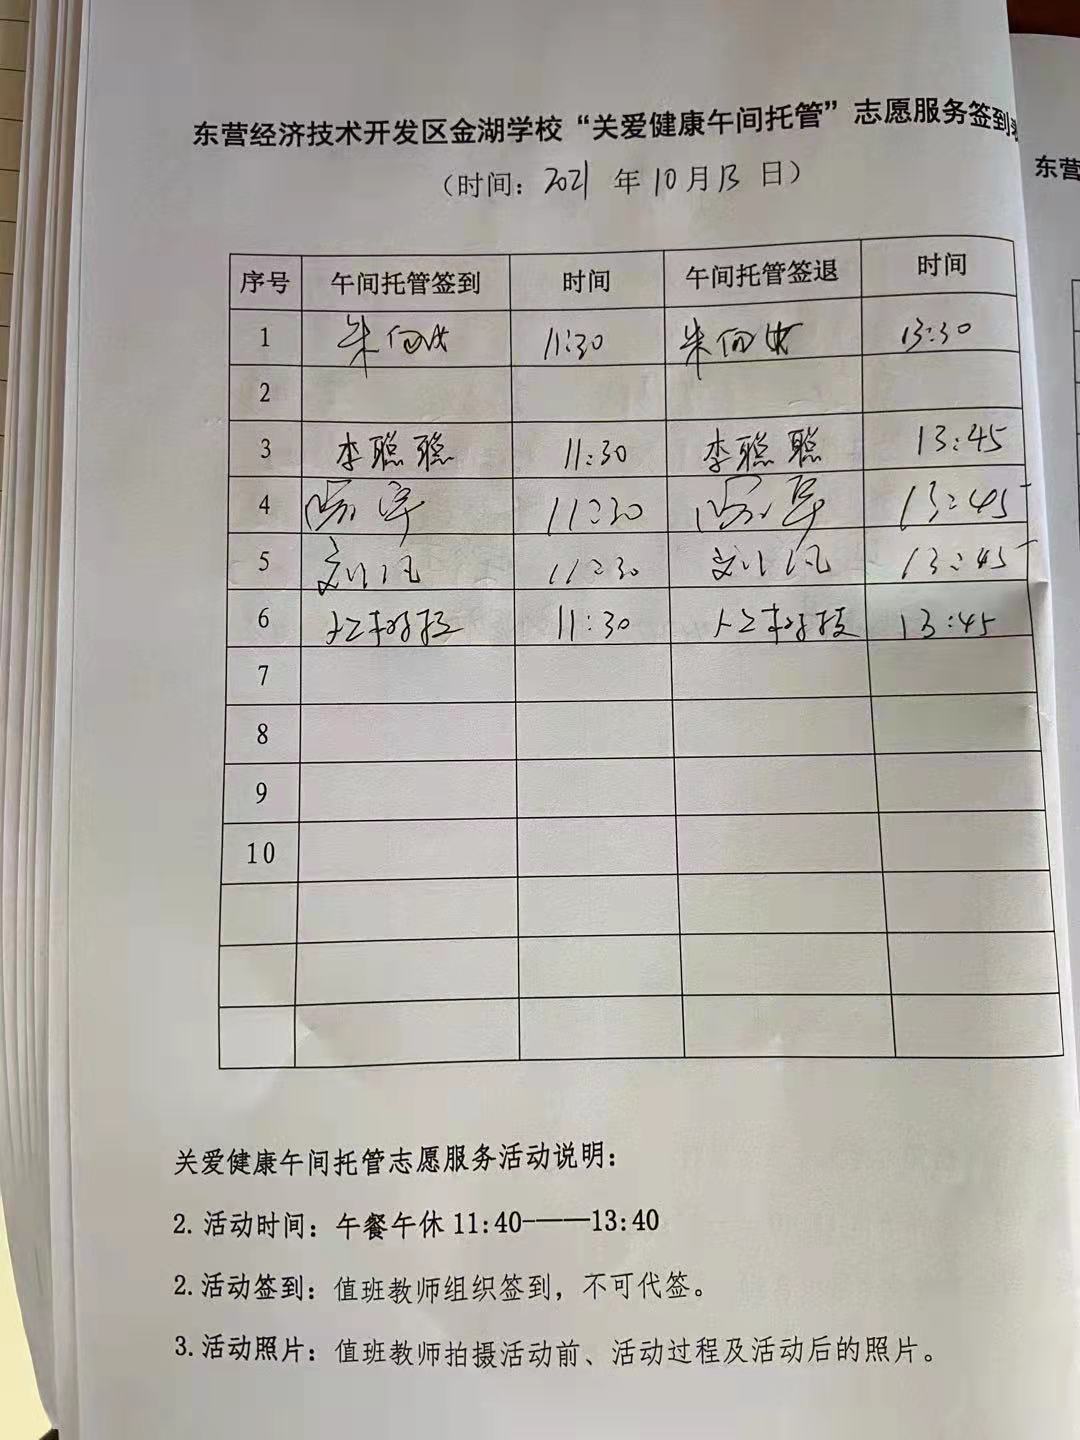 东营经济技术开发区金湖学校“关爱健康午间托管”志愿服务签到表
(时间: 2021 年 10 月 13 日)
东营
序号 午间托管签到 时间 午间托管签退 时间
1 朱 11:30 朱 13:30
2
3 李聪聪 11:30 李聪聪 13:45
4 11:30 13:45
5 刘凡 11:30 刘凡 13:45
6 11:30 13:45
7
8
9
10
关爱健康午间托管志愿服务活动说明:
2.活动时间: 午餐午休 11:40-——13:40
2.活动签到: 值班教师组织签到, 不可代签。
3.活动照片: 值班教师拍摄活动前、活动过程及活动后的照片。